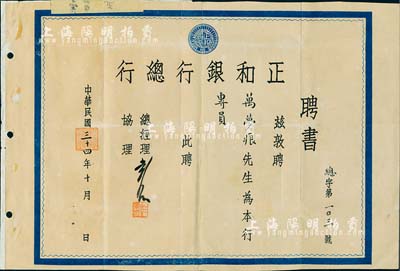 上海陽明拍賣
正和銀行總行
聘書
總字第一〇三號
茲敦聘
萬 先生為本行
專員
此聘
總經理
協理
中華民國三十四年十月 日
上海陽明拍賣